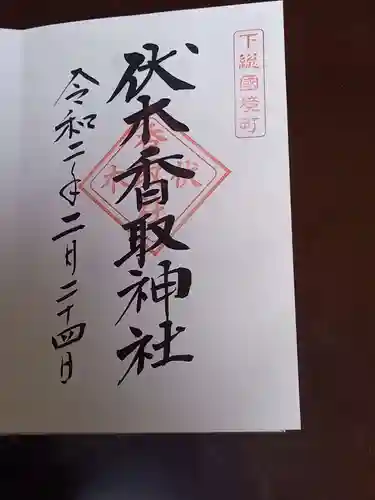 下総國境町
伏木香取神社
令和二年二月二十四日